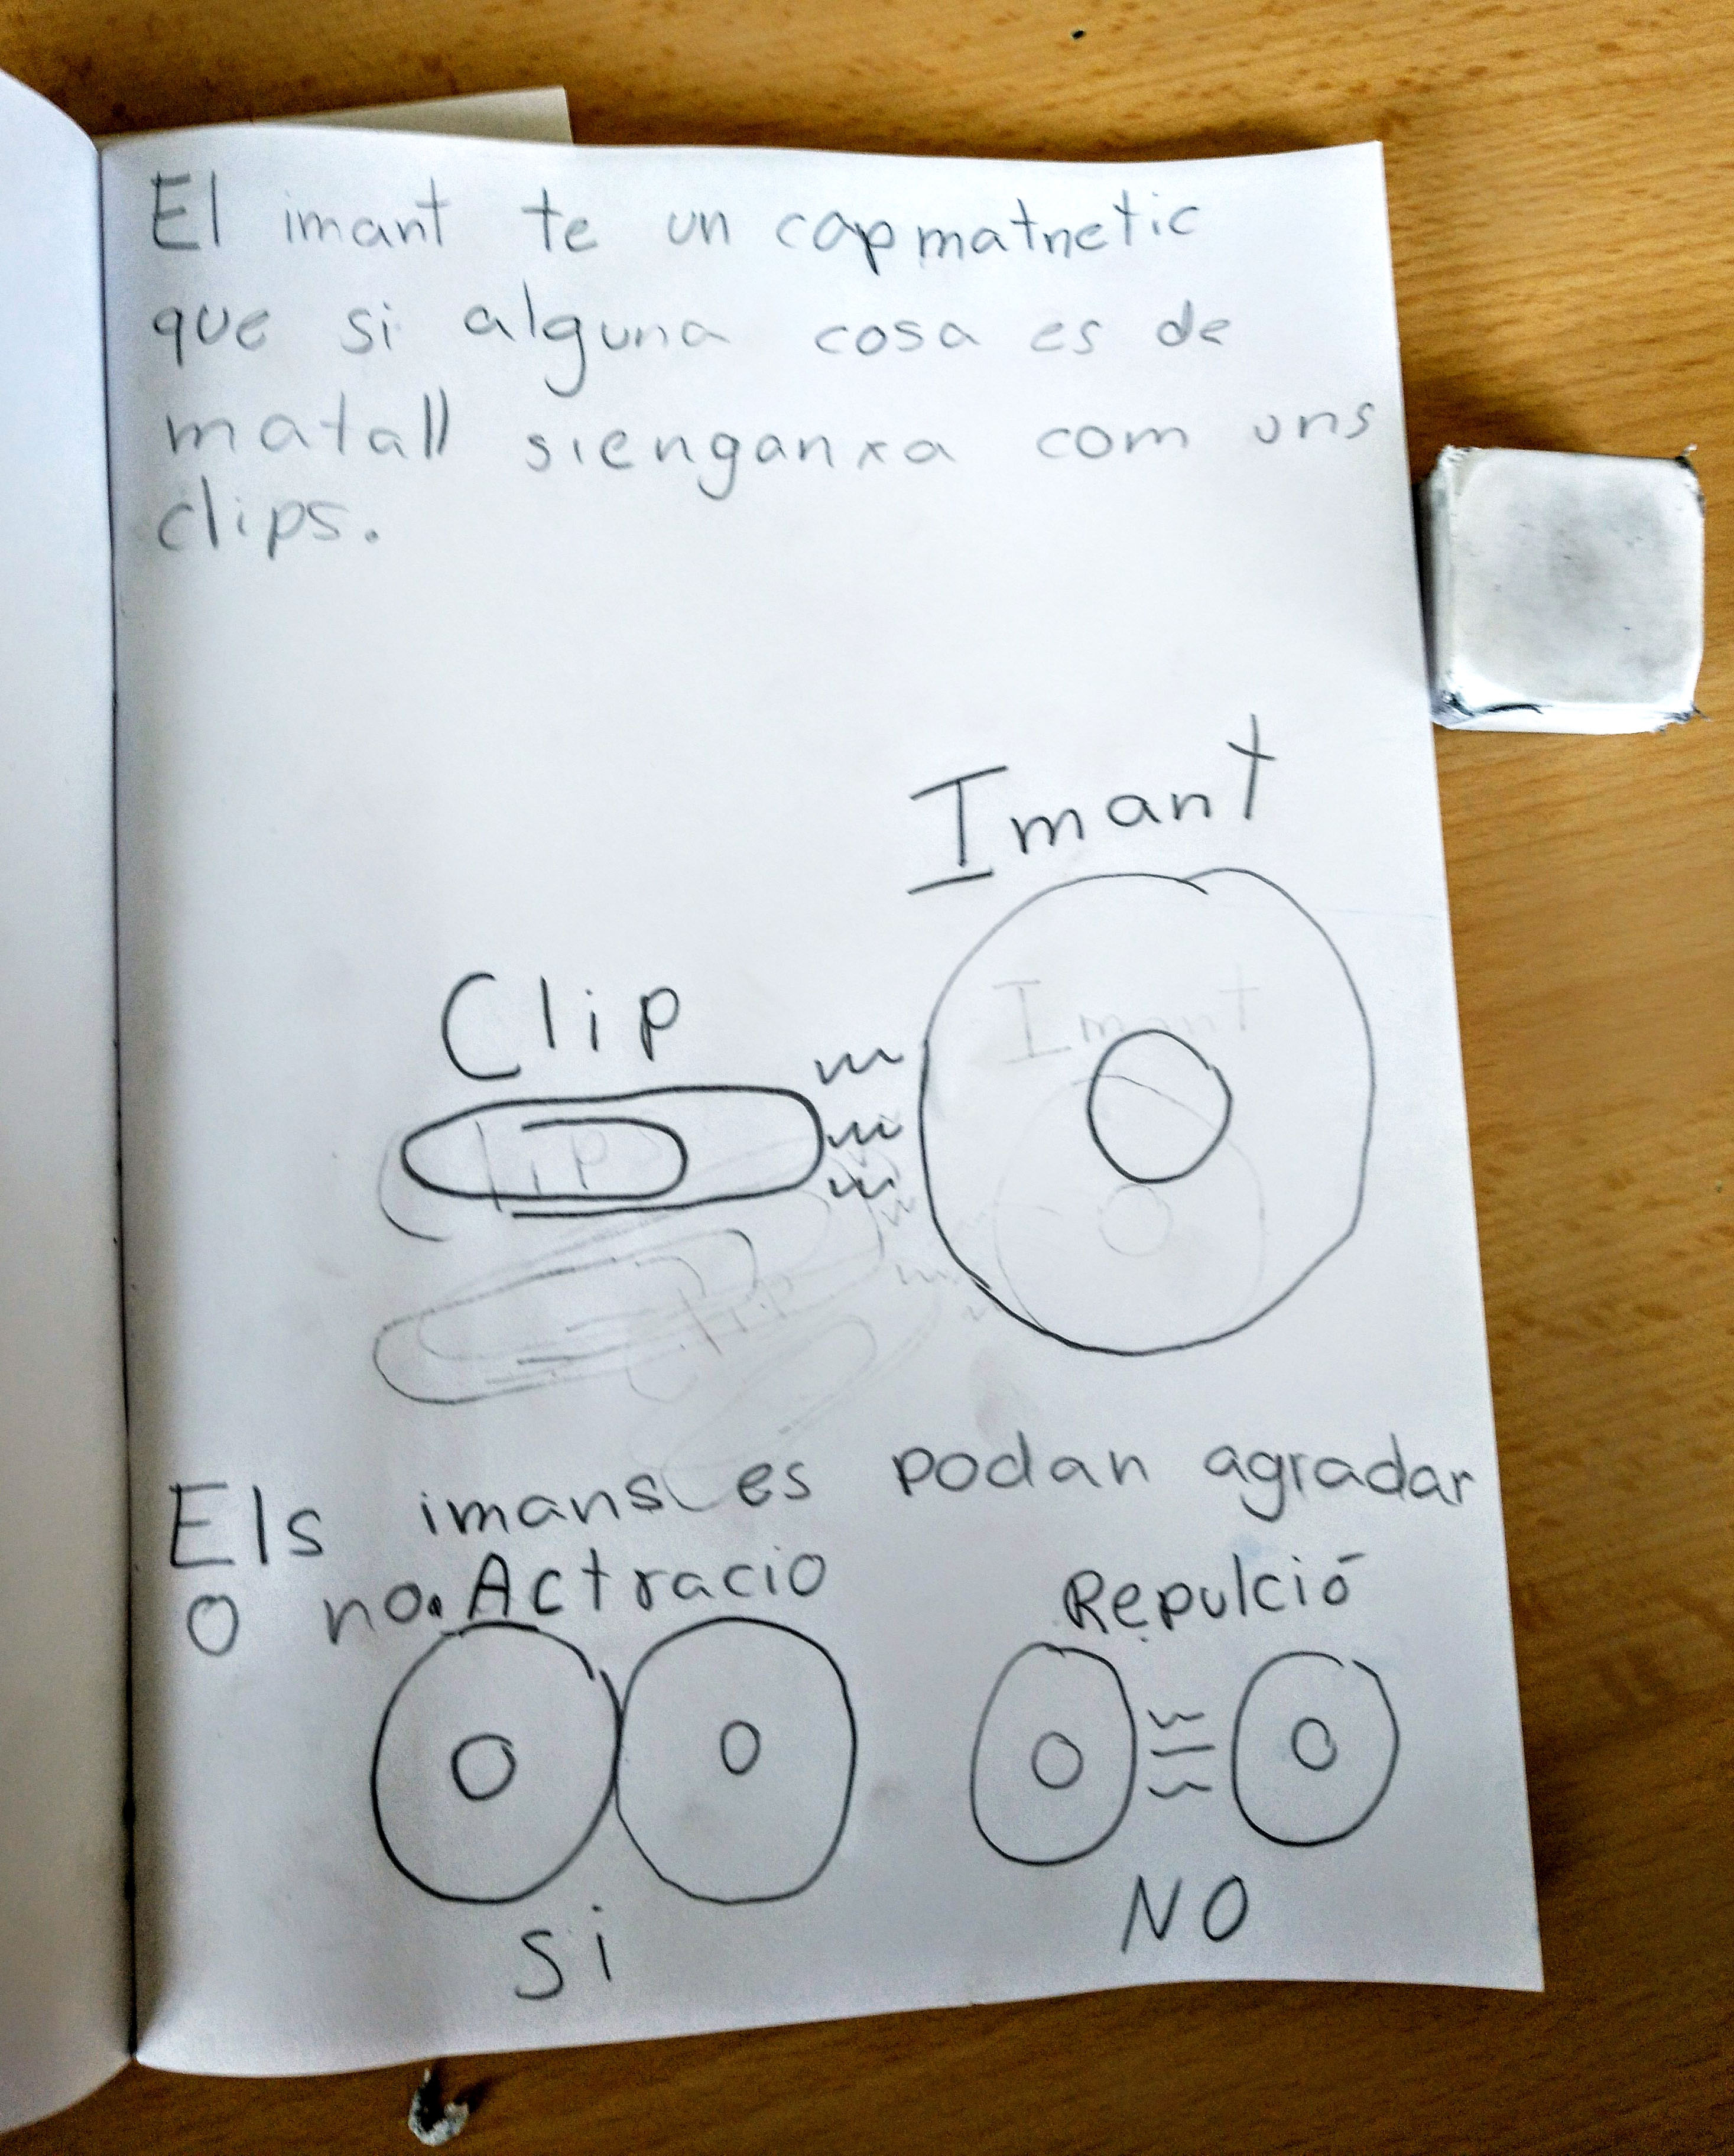 El imant te un capmatnetic
que si alguna cosa es de
matall sienganxa com uns
clips.
Imant
Imant
Clip
lips
Els imans es podan agradar
O no. Actracio
Repulció
Si
NO